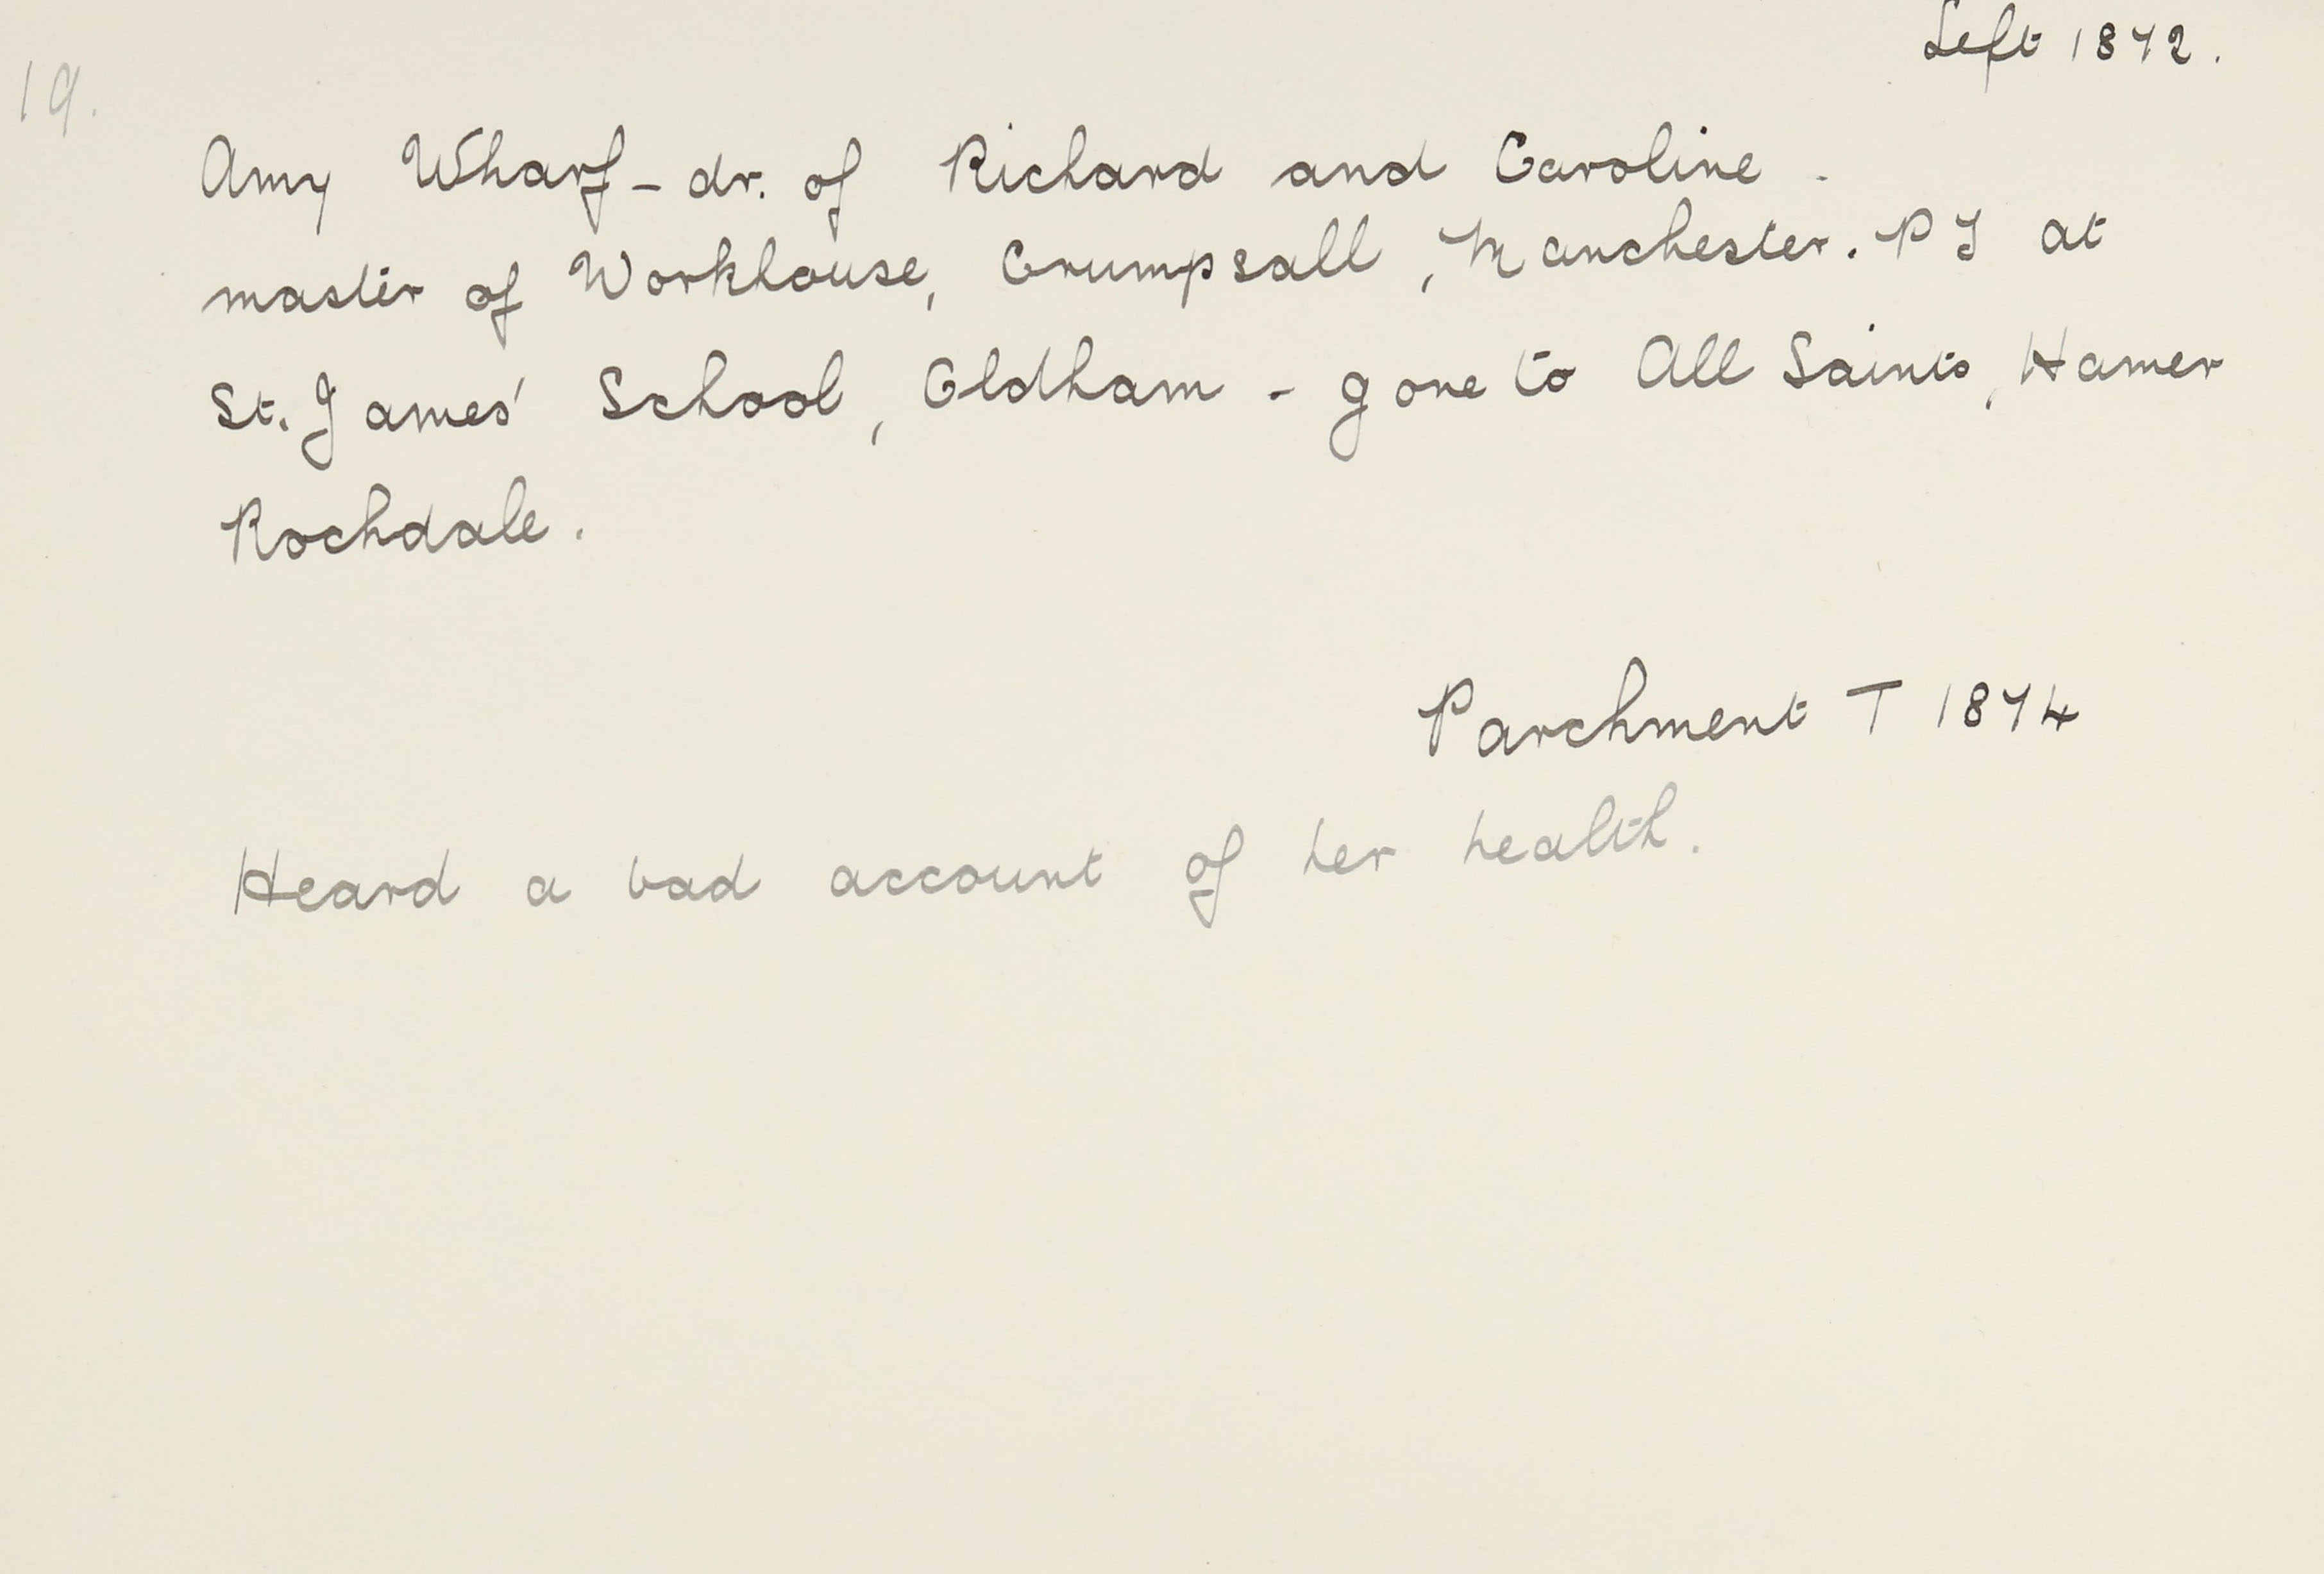 Left 1872.
19.
Amy Wharf - dr. of Richard and Caroline.
master of Workhouse, Crumpsall, Manchester. PT at
St. James' School, Oldham - gone to All Saints, Hamer
Rochdale.
Parchment T 1874
Heard a bad account of her health.